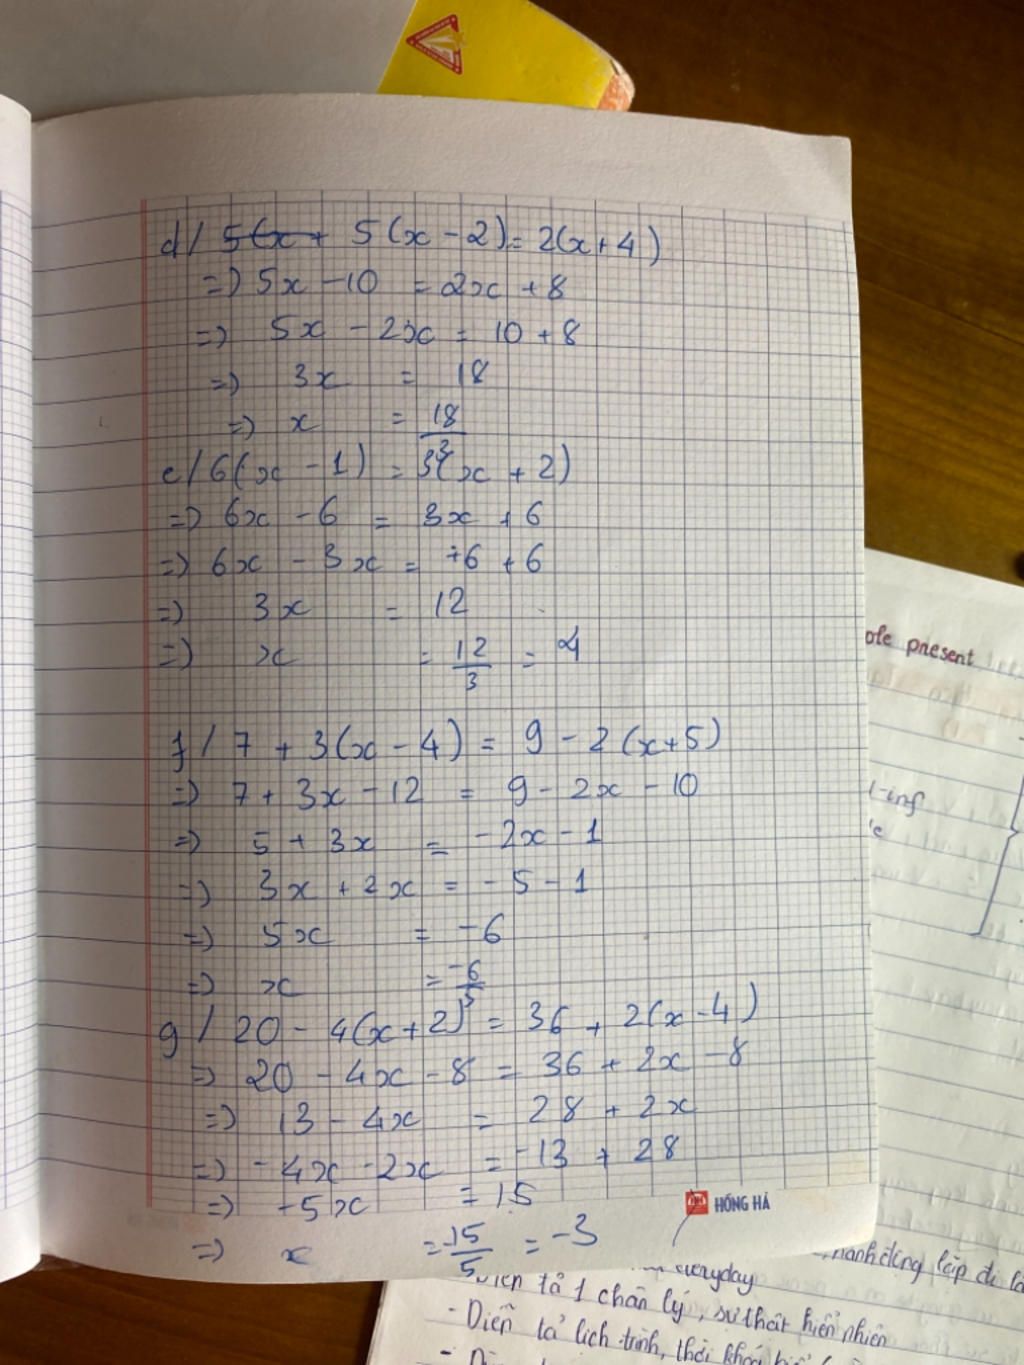 d/ 5(x + 5(x - 2) = 2(x + 4)
=> 5x - 10 = 2x + 8
=> 5x - 2x = 10 + 8
=> 3x = 18
=> x = 18/3
e/ 6(x - 1) = 3(x + 2)
=> 6x - 6 = 3x + 6
=> 6x - 3x = +6 + 6
=> 3x = 12
=> x = 12/3 = 4
f/ 7 + 3(x - 4) = 9 - 2(x+5)
=> 7 + 3x - 12 = 9 - 2x - 10
=> 5 + 3x = -2x - 1
=> 3x + 2x = -5 - 1
=> 5x = -6
=> x = -6/5
g/ 20 - 4(x+2) = 36 + 2(x-4)
=> 20 - 4x - 8 = 36 + 2x - 8
=> 13 - 4x = 28 + 2x
=> -4x - 2x = -13 + 28
=> -5x = 15
=> x = -15/5 = -3
HỒNG HÀ
present
everyday
lặp đi
tả 1 chân lý, sự thật hiển nhiên
- Diễn tả lịch trình, thời